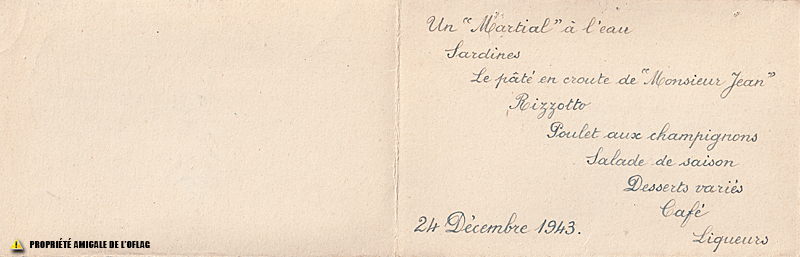 Un "Martial" à l'eau
Sardines
Le pâté en croute de "Monsieur Jean"
Rizzotto
Poulet aux champignons
Salade de saison
Desserts variés
Café
Liqueurs
24 Décembre 1943.
PROPRIÉTÉ AMIGALE DE L'OFLAG